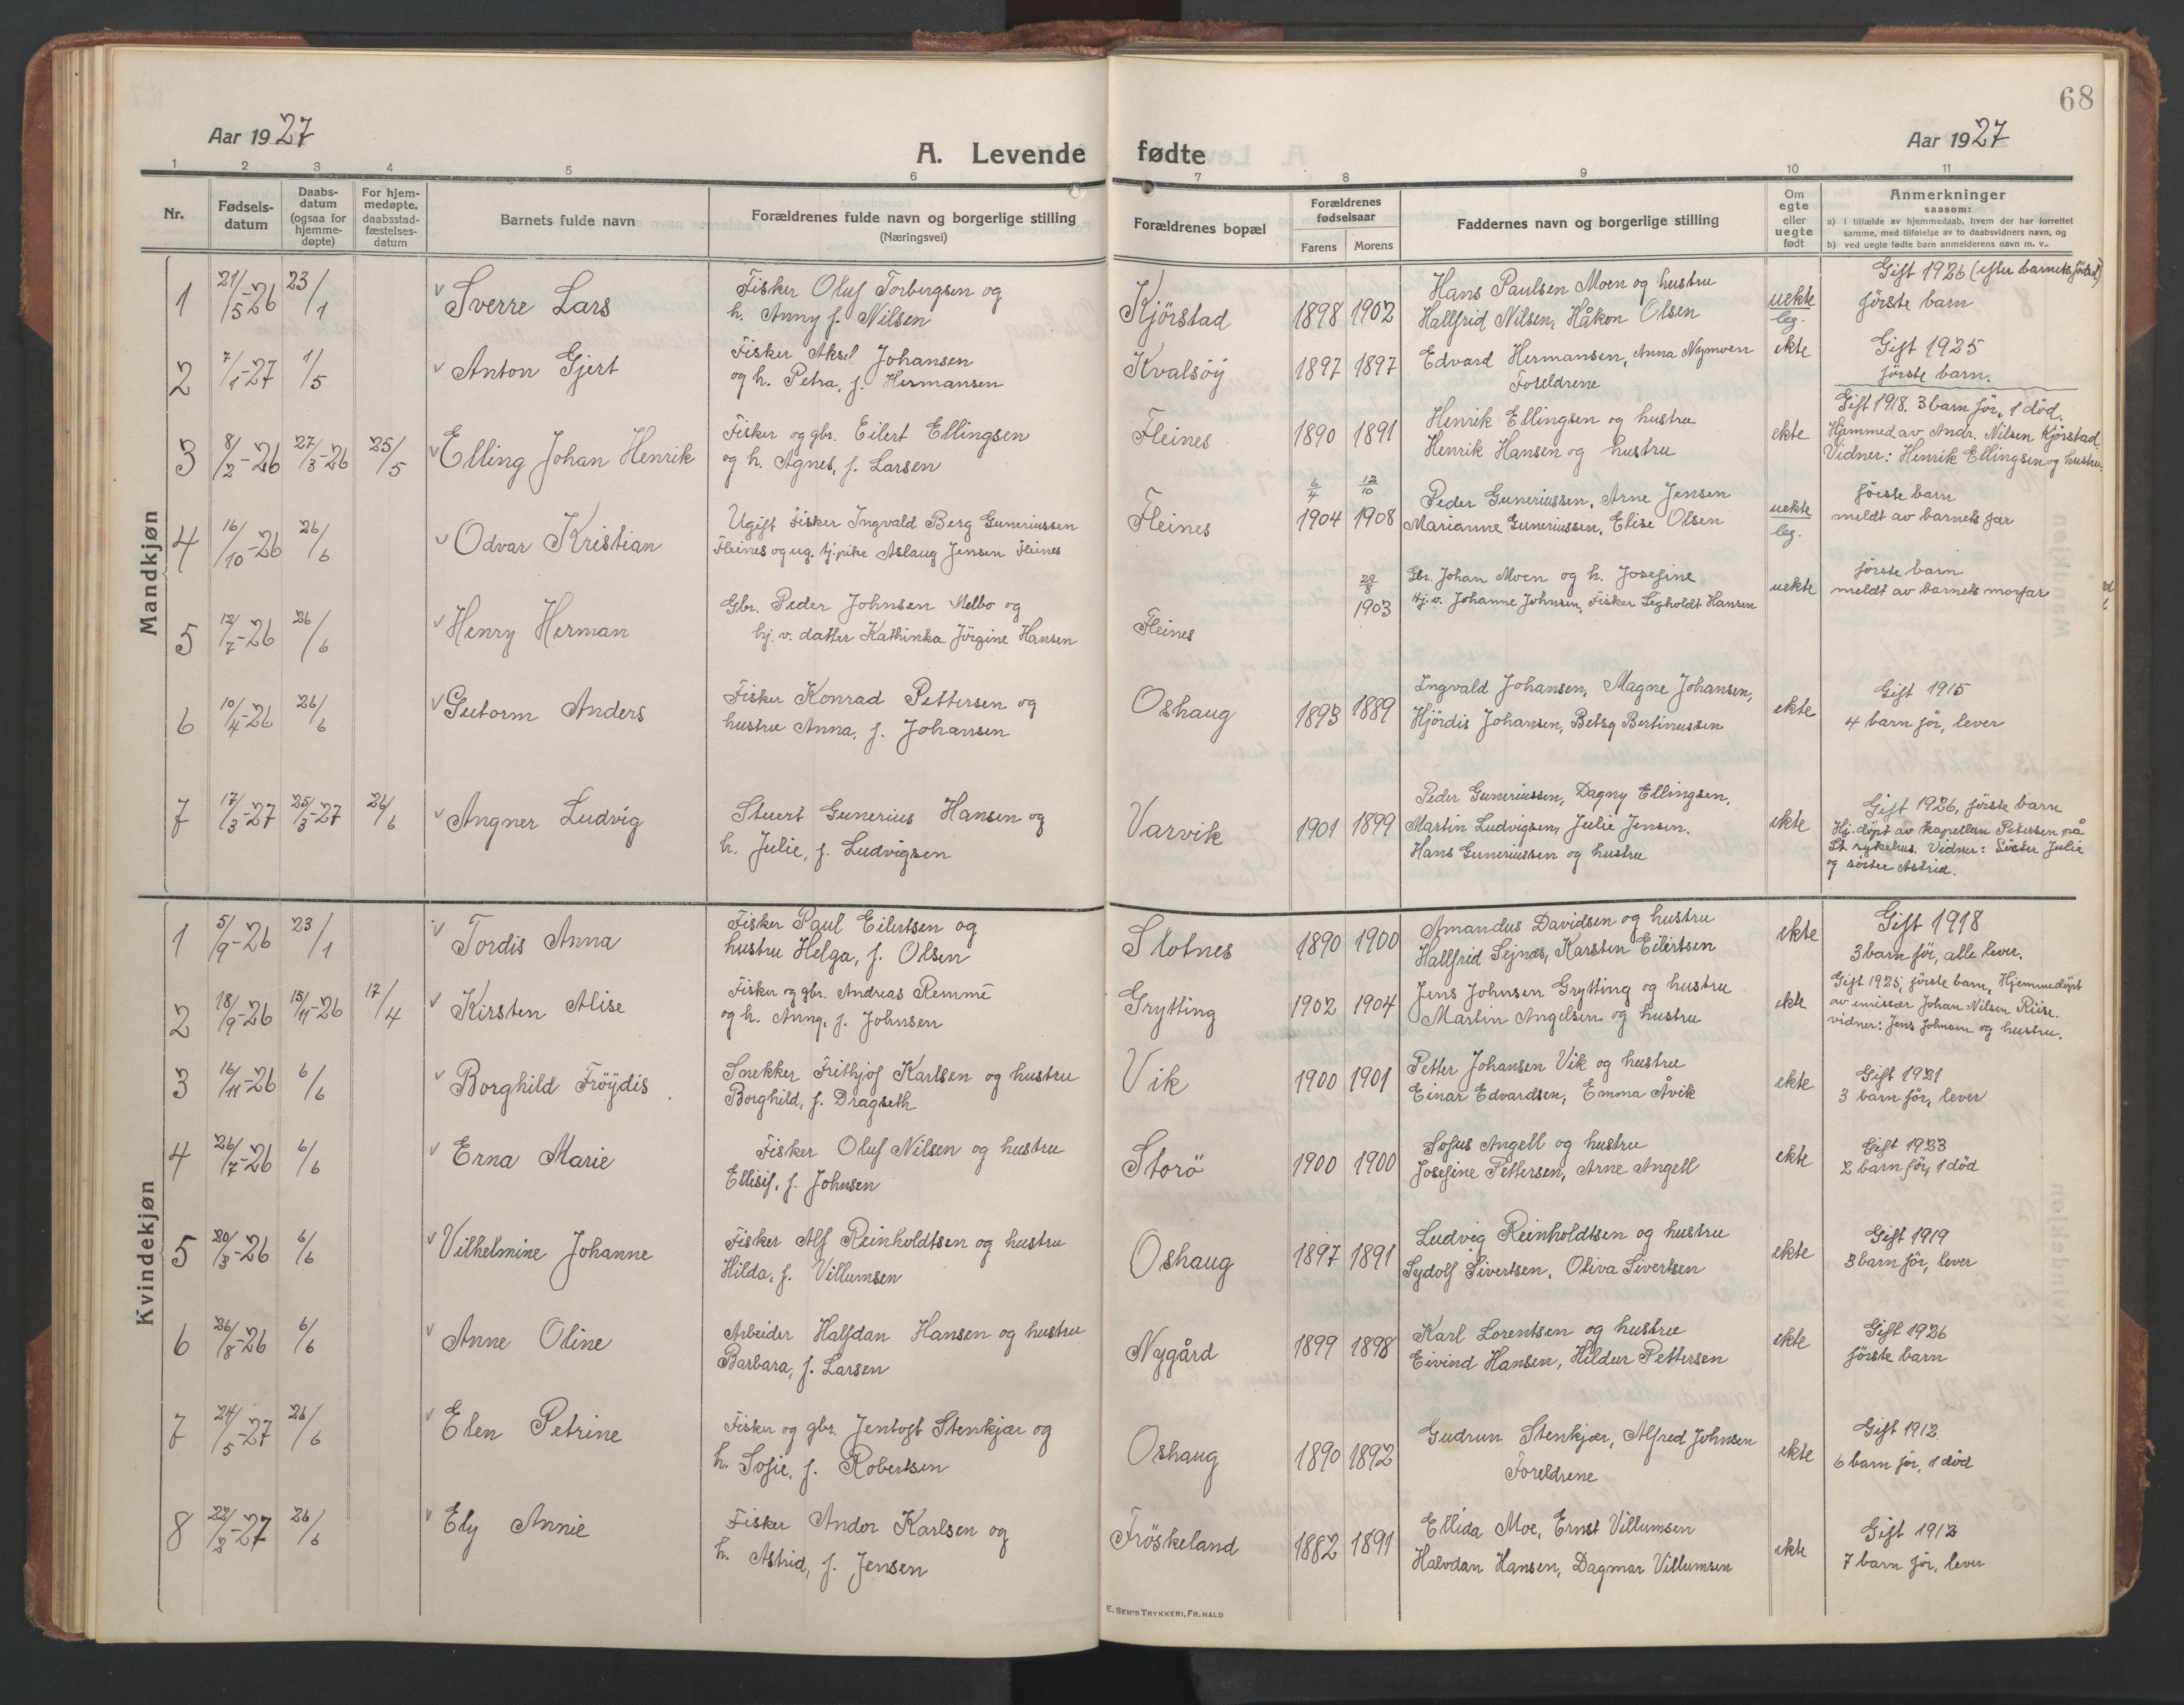 68
Aar 1927
Aar 1927
A. Levende fødte
1 2 3 4 5 6 7 8 9 10 11
Nr.
Fødsels-
datum
Daabs-
datum
(ogsaa for
hjemme-
døpte)
For hjem-
medøpte,
daabsstad-
fæstelses-
datum
Barnets fulde navn
Forældrenes fulde navn og borgerlige stilling
(Næringsvei)
Forældrenes bopæl
Forældrenes
fødselsaar
Farens Morens
Faddernes navn og borgerlige stilling
Om
egte
eller
uegte
født
Anmerkninger
saasom:
a) i tilfælde av hjemmedaab, hvem der har forrettet
samme, med tilføielse av to daabsvidners navn, og
b) ved uegte fødte barn anmelderens navn m. v..
Mandkjøn
1 21/5-26 23/1
Sverre Lars
Fisker Oluf Torbergsen og
h. Anny f. Nilsen
Kjörstad
1898 1902
Hans Paulsen Moen og hustru
Hallfrid Nilsen, Håkon Olsen
uekte
leg.
Gift 1926 (efter barnets födsel)
förste barn
2 7/1-27 1/5
Anton Gjert
Fisker Aksel Johansen
og h. Petra, f. Hermansen
Kvalsöy
1897 1897
Edvard Hermansen, Anna Nymoen
Foreldrene
ekte
Gift 1925
förste barn.
3 8/2-26 27/3-26 25/5
Elling Johan Henrik
Fisker og gbr. Eilert Ellingsen
og h. Agnes, f. Larsen
Fleines
1890 1891
Henrik Ellingsen og hustru
Henrik Hansen og hustru
ekte
Gift 1918. 3 barn för, 1 död.
Hjemmed. av Andr. Nilsen Kjörstad
Vidner: Henrik Ellingsen og hustru.
4 16/10-26 26/6
Odvar Kristian
Ugift Fisker Ingvald Berg Guneriussen
Fleines og ug. tj.pike Aslaug Jensen Fleines
Fleines
6/4 12/10
1904 1908
Peder Guneriussen, Arne Jensen
Marianne Guneriussen, Elise Olsen
uekte
leg.
förste barn
meldt av barnets far
5 12/7-26 26/6
Henry Herman
Gbr. Peder Johnsen Melbo og
hj. v. datter Kathinka Jörgine Hansen
Fleines
28/8
1903
Gbr. Johan Moen og h. Josefine
Hj. v. Johanne Johnsen, Fisker Legholdt Hansen
uekte
förste barn
meldt av barnets morfar
6 10/4-26 26/6
Gutorm Anders
Fisker Konrad Pettersen og
hustru Anna, f. Johansen
Oshaug
1893 1889
Ingvald Johansen, Magne Johansen,
Hjördis Johansen, Betsy Bertinussen
ekte
Gift 1915
4 barn för, lever
7 17/3-27 25/3-27 26/6
Angner Ludvig
Stuert Gunerius Hansen og
h. Julie, f. Ludvigsen
Varvik
1901 1899
Peder Guneriussen, Dagny Ellingsen,
Martin Ludvigsen, Julie Jensen.
Hans Guneriussen og hustru
ekte
Gift 1926, förste barn
Hj. döpt av kapellan Petersen på
St. sykehus. Vidner: Söster Julie
og söster Astrid.
Kvindekjøn
1 5/9-26 23/1
Tordis Anna
Fisker Paul Eilertsen og
hustru Helga, f. Olsen
Slotnes
1890 1900
Amandus Davidsen og hustru
Hallfrid Sejnæs, Karsten Eilertsen
ekte
Gift 1918
3 barn för, alle lever.
2 18/9-26 15/11-26 17/4
Kirsten Alise
Fisker og gbr. Andreas Remmé
og h. Anny, f. Johnsen
Grytting
1902 1904
Jens Johnsen Grytting og hustru
Martin Angelsen og hustru
ekte
Gift 1925, förste barn, Hjemmedöpt
av emissær Johan Nilsen Riise.
vidner: Jens Johnsen og hustru.
3 16/11-26 6/6
Borghild Fröydis
Snekker Frithjof Karlsen og hustru
Borghild, f. Dragseth
Vik
1900 1901
Petter Johansen Vik og hustru
Einar Edvardsen, Emma Åvik
ekte
Gift 1921
3 barn för, lever
4 26/7-26 6/6
Erna Marie
Fisker Oluf Nilsen og hustru
Ellisif, f. Johnsen
Storö
1900 1900
Sofus Angell og hustru
Josefine Pettersen, Arne Angell
ekte
Gift 1923
2 barn för, 1 död
5 20/3-26 6/6
Vilhelmine Johanne
Fisker Alf Reinholdtsen og hustru
Hilda, f. Villumsen
Oshaug
1897 1891
Ludvig Reinholdtsen og hustru
Sydolf Sivertsen, Oliva Sivertsen
ekte
Gift 1919
3 barn för, lever
6 26/8-26 6/6
Anne Oline
Arbeider Halfdan Hansen og hustru
Barbara, f. Larsen
Nygård
1899 1898
Karl Lorentsen og hustru
Eivind Hansen, Hildur Pettersen
ekte
Gift 1926
förste barn
7 24/5-27 26/6
Elen Petrine
Fisker og gbr. Jentoft Stenkjær og
h. Sofie, f. Robertsen
Oshaug
1890 1892
Gudrun Stenkjær, Alfred Johnsen
Foreldrene
ekte
Gift 1912
6 barn för, 1 död
8 22/2-27 26/6
Ely Annie
Fisker Andor Karlsen og
h. Astrid, f. Jensen
Fröskeland
1882 1891
Ellida Moe, Ernst Villumsen
Halvdan Hansen, Dagmar Villumsen
ekte
Gift 1912
7 barn för, lever
E. SEM'S TRYKKERI, FR. HALD